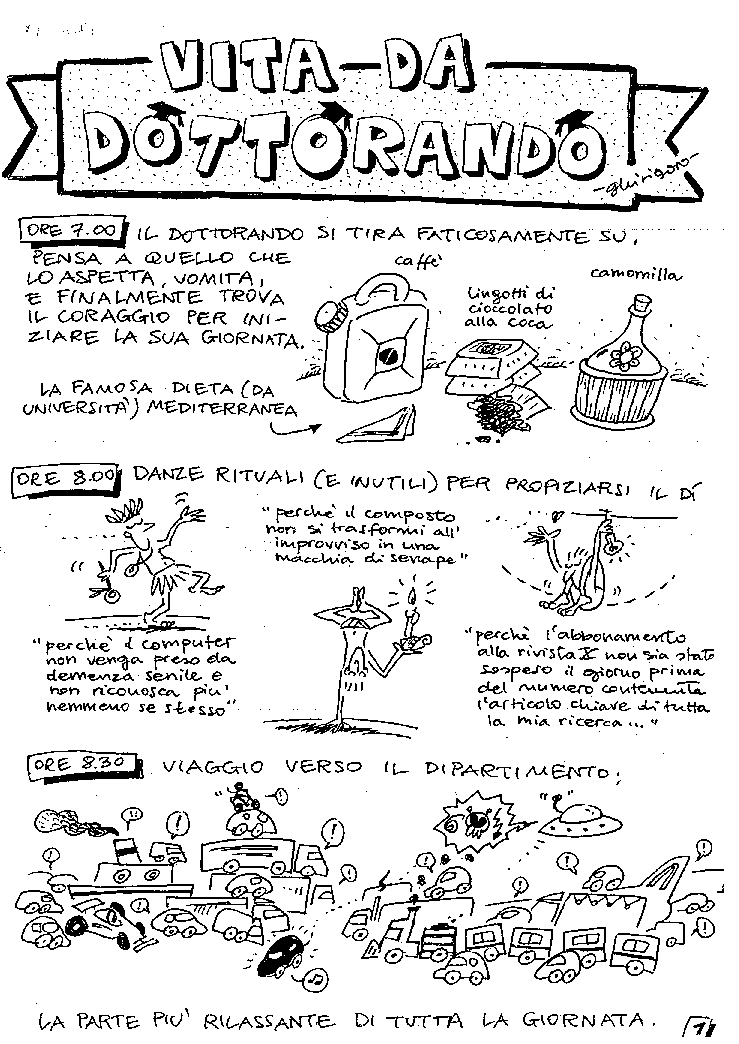 VITA DA
DOTTORANDO
-ghirigoro-
ORE 7.00 IL DOTTORANDO SI TIRA FATICOSAMENTE SU,
PENSA A QUELLO CHE
LO ASPETTA, VOMITA,
E FINALMENTE TROVA
IL CORAGGIO PER INI-
ZIARE LA SUA GIORNATA.
caffè
lingotti di
cioccolato
alla coca
camomilla
LA FAMOSA DIETA (DA
UNIVERSITÀ) MEDITERRANEA
ORE 8.00 DANZE RITUALI (E INUTILI) PER PROPIZIARSI IL DÍ
"perchè il computer
non venga preso da
demenza senile e
non riconosca più
nemmeno se stesso"
"perchè il composto
non si trasformi all'
improvviso in una
macchia di senape"
"perchè l'abbonamento
alla rivista X non sia stato
sospeso il giorno prima
del numero contenente
l'articolo chiave di tutta
la mia ricerca..."
ORE 8.30 VIAGGIO VERSO IL DIPARTIMENTO;
LA PARTE PIU' RILASSANTE DI TUTTA LA GIORNATA.
1